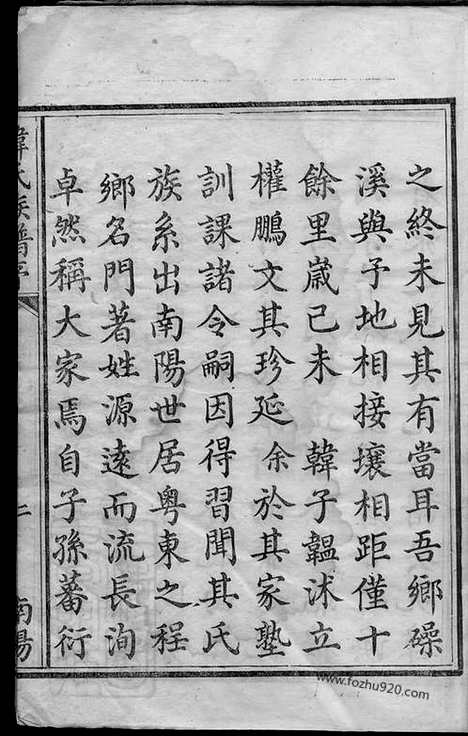 之終未見其有當耳吾鄉磜
溪與予地相接壤相距僅十
餘里歲己未 韓子韞沐立
權鵬文其珍延余於其家塾
訓課諸令嗣因得習聞其氏
族系出南陽世居粵東之程
鄉名門著姓源遠而流長洵
卓然稱大家焉自子孫蕃衍
韓氏族譜序
二
南陽
www.fozhu920.com